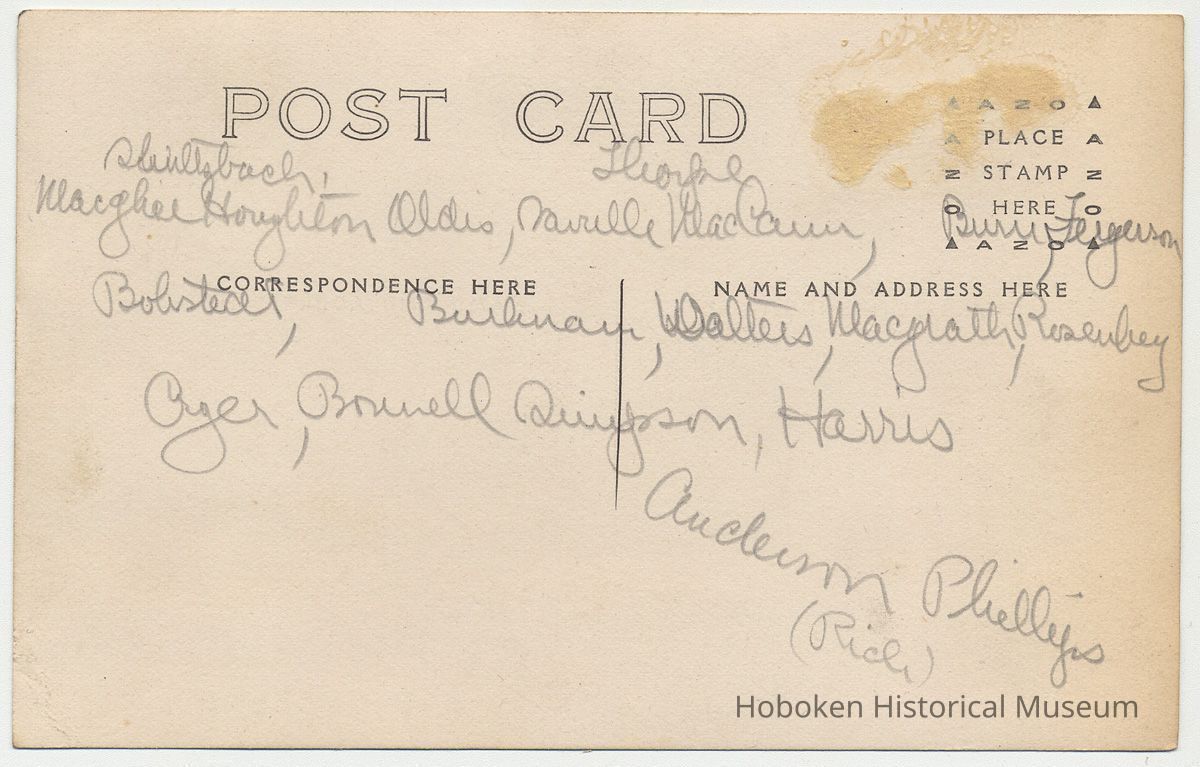 POST CARD
▲ A Z O ▲
PLACE
STAMP
HERE
▲ A Z O ▲
Thorpe
Macghee Houghton Oldis, Neville MacCann, Burr, Fergerson
CORRESPONDENCE HERE
NAME AND ADDRESS HERE
Bohstedt, Burnham, Walters, Macgrath, Rosenbey
Bonnell Simpson, Harris
Anderson Phillips
(Rich)
Hoboken Historical Museum